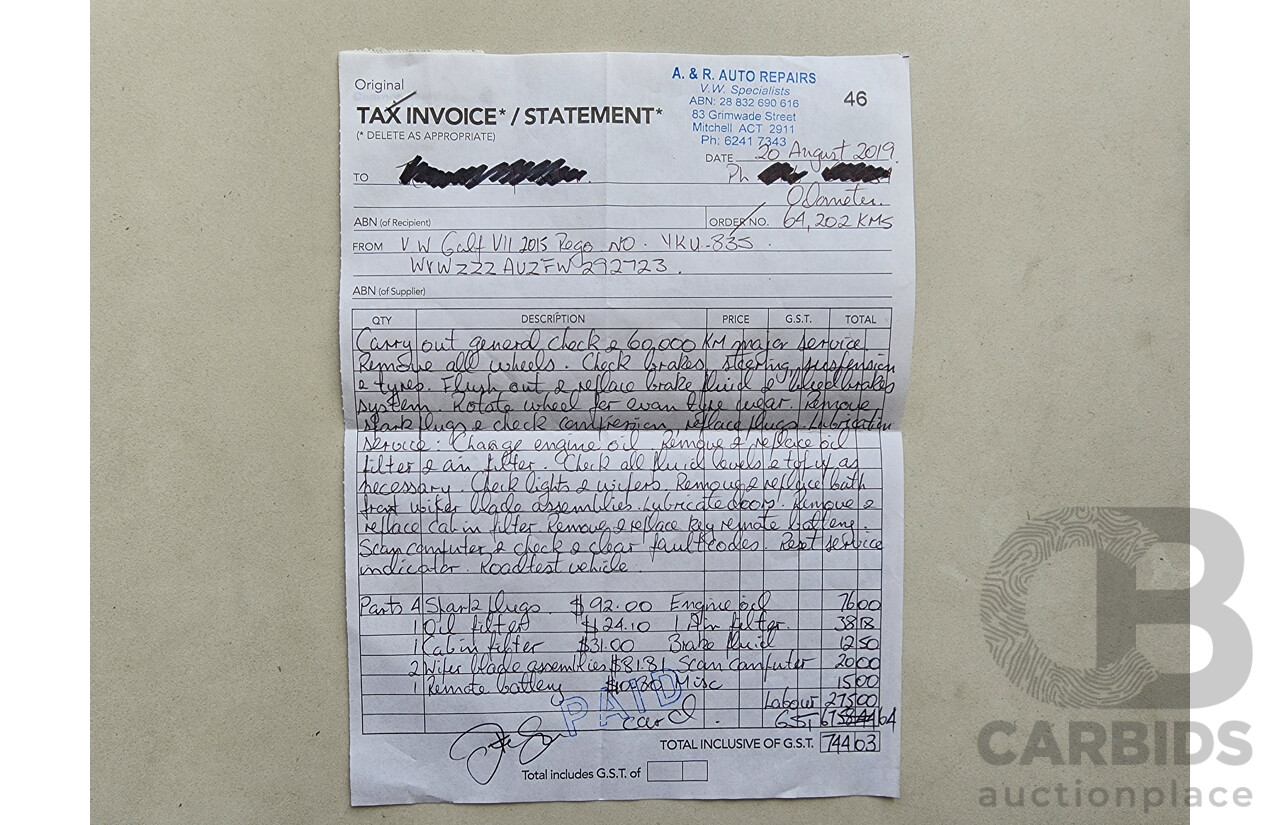 Original
TAX INVOICE* / STATEMENT*
(* DELETE AS APPROPRIATE)
A. & R. AUTO REPAIRS
V.W. Specialists
ABN: 28 832 690 616
83 Grimwade Street
Mitchell ACT 2911
Ph: 6241 7343
46
DATE 20 August 2019.
TO
Ph
Odometer.
ABN (of Recipient)
ORDER NO. 64,202 KMS
FROM V W Golf VII 2015 Rego NO. YKU-835.
WVWZZZAUZFW292723.
ABN (of Supplier)
QTY DESCRIPTION PRICE G.S.T. TOTAL
Carry out general check & 60,000 KM major service
Remove all wheels. Check brakes, steering, suspension
& tyres. Flush out & replace brake fluid & bleed brakes
system. Rotate wheel for even tyre wear. Remove
spark plugs & check compression, replace plugs. Lubrication
service: Change engine oil. Remove & replace oil
filter & air filter. Check all fluid levels & top up as
necessary. Check lights & wipers. Remove & replace both
front wiper blade assemblies. Lubricate doors. Remove &
replace cabin filter. Remove & replace key remote battery.
Scan computer & check & clear fault codes. Reset service
indicator. Roadtest vehicle.
Parts 4 Spark plugs. $92.00 Engine oil 76 00
1 Oil filter $24.10 1 Air filter. 38 18
1 Cabin filter $31.00 Brake fluid 12 50
2 Wiper blade assemblies $81.81 Scan computer 20 00
1 Remote battery $10.80 Misc 15 00
Labour 275 00
PAID
card. GST 67 64
TOTAL INCLUSIVE OF G.S.T. 744 03
Total includes G.S.T. of
CARBIDS
auctionplace